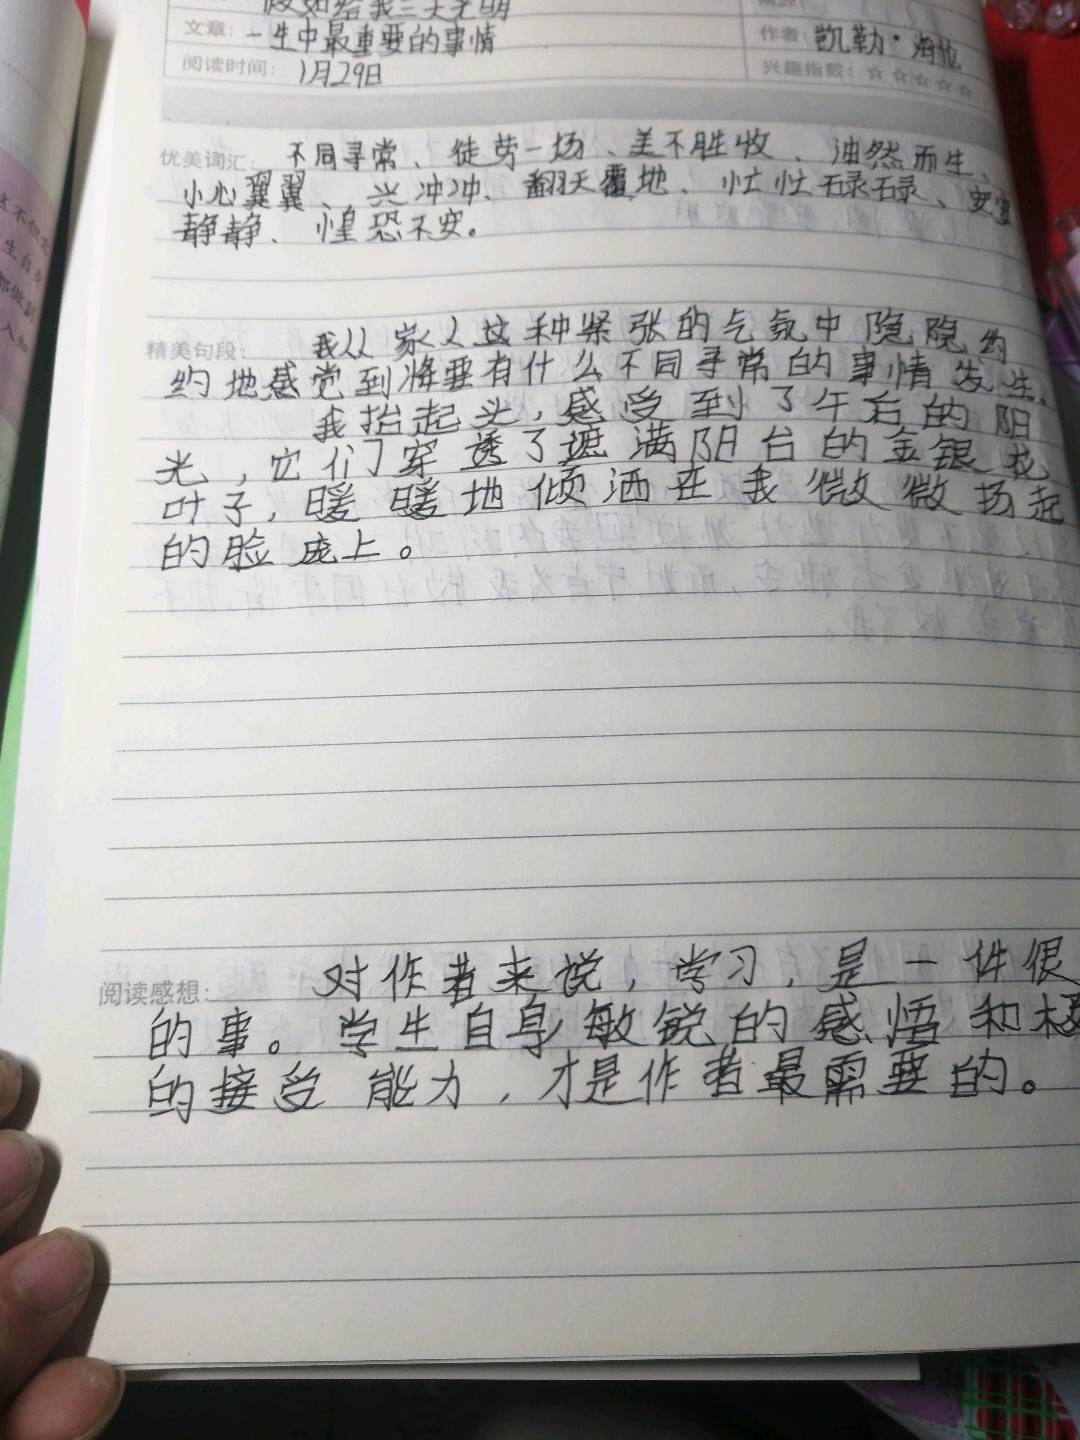 假如给我三天光明
文章：一生中最重要的事情
作者：凯勒·海伦
阅读时间：1月29日
兴趣指数：☆☆☆☆☆
优美词汇：不同寻常、徒劳一场、美不胜收、油然而生、
小心翼翼、兴冲冲、翻天覆地、忙忙碌碌、安安
静静、惶恐不安。
精美句段：我从家人这种紧张的气氛中隐隐约
约地感觉到将要有什么不同寻常的事情发生。
我抬起头，感受到了午后的阳
光，它们穿透了遮满阳台的金银花
叶子，暖暖地倾洒在我微微扬起
的脸庞上。
阅读感想：对作者来说，学习，是一件很
的事。学生自身敏锐的感悟和极
的接受能力，才是作者最需要的。
这不但
生自身
都做到
人知